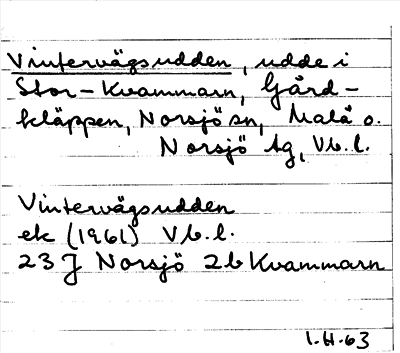 Vintervägsudden, udde i
Stor-Kvammarn, Gård-
kläppen, Norsjö sn, Malå o.
Norsjö tg, Vb. l.
Vintervägsudden
ek (1961) Vb. l.
23 J Norsjö 2b Kvammarn
I.H.63